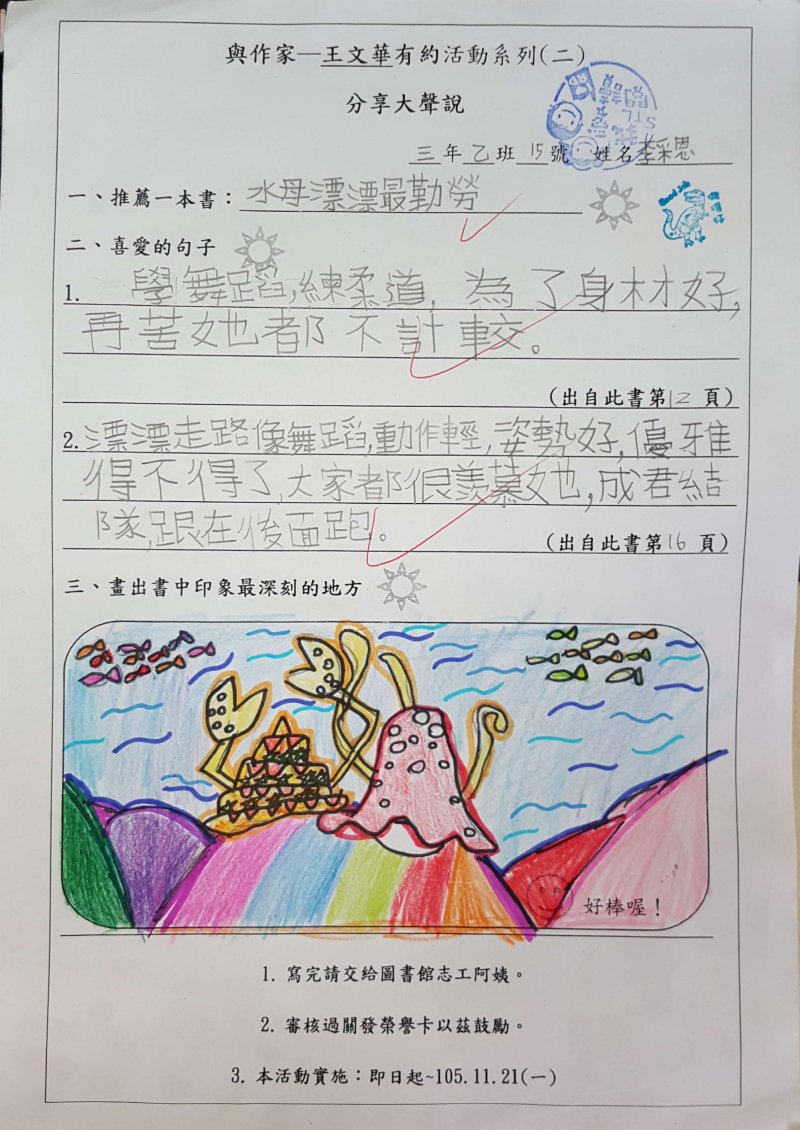 與作家—王文華有約活動系列(二)
分享大聲說
三年乙班 15號 姓名李采恩
一、推薦一本書：水母漂漂最勤勞
二、喜愛的句子
1. 學舞蹈,練柔道,為了身材好,
再苦她都不計較。
(出自此書第12頁)
2.漂漂走路像舞蹈,動作輕,姿勢好,優雅
得不得了,大家都很羨慕她,成君結
隊,跟在後面跑。
(出自此書第16頁)
三、畫出書中印象最深刻的地方
好棒喔！
1. 寫完請交給圖書館志工阿姨。
2. 審核過關發榮譽卡以茲鼓勵。
3. 本活動實施：即日起~105.11.21(一)